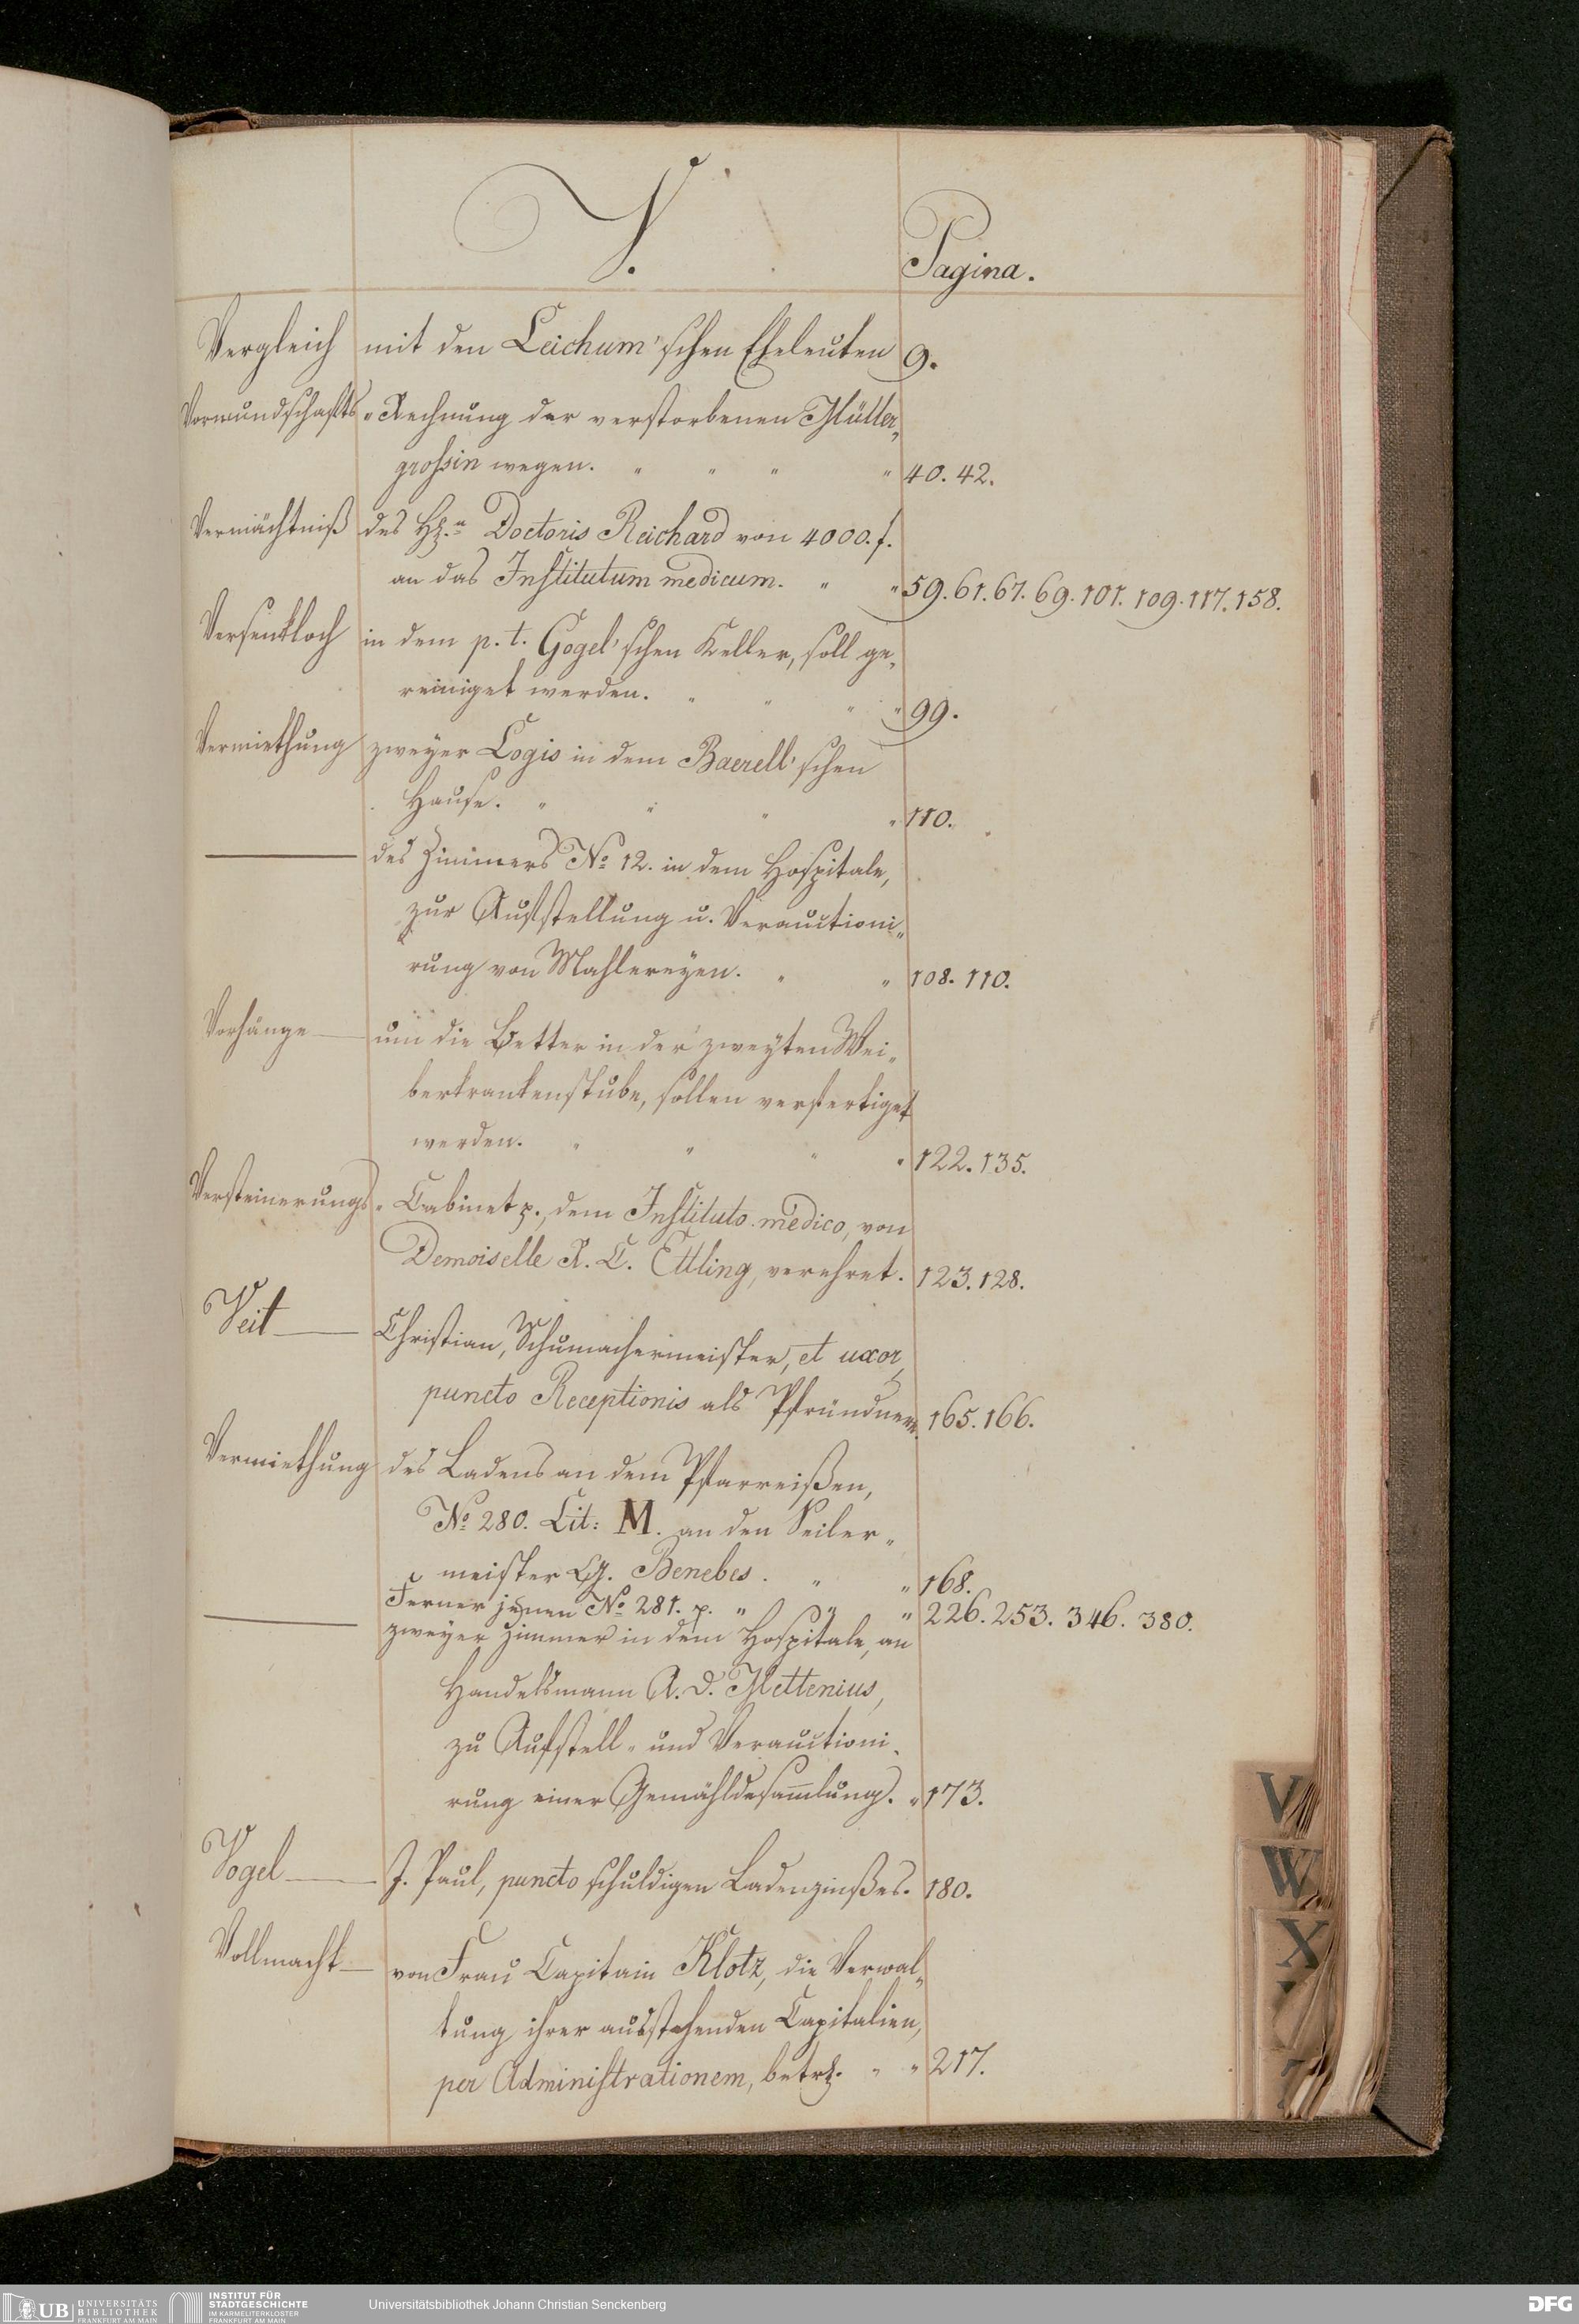 V.
Pagina.
Vergleich mit den Leichum'schen Eheleuten 9.
Vormundschafts- Rechnung der verstorbenen Müller-
grossin wegen. " " " " 40. 42.
Vermächtniß des H. Doctoris Reichard von 4000. f.
an das Institutum medicum. " " 59. 61. 67. 69. 101. 109. 117. 158.
Versenkloch in dem p. t. Gogel'schen Keller, soll ge-
reiniget werden. " " " " 99.
Vermiethung zweyer Logis in dem Baerell'schen
Hause. " " " " 110.
——— des Zimmers No 12. in dem Hospitale,
zur Aufstellung u. Verauctioni-
rung von Mahlereyen. " " 108. 110.
Vorhänge — um die Better in der zweyten Wei-
berkrankenstube, sollen verfertiget
werden. " " " " 122. 135.
Versteinerungs- Cabinet p., dem Instituto medico, von
Demoiselle R. C. Ettling, verehret. 123. 128.
Veit — Christian, Schumachermeister, et uxor,
puncto Receptionis als Pfründner. 165. 166.
Vermiethung des Ladens an dem Pfarreißen,
No 280. Lit: M. an den Seiler-
meister G. Benebes. " " 168.
Ferner jenen No 281. p. " " " 226. 253. 346. 380.
——— zweyer Zimmer in dem Hospitale, an
Handelsmann A. D. Mettenius,
zu Aufstell- und Verauctioni-
rung einer Gemähldesam̄lung. " 173.
Vogel — J. Paul, puncto schuldigen Ladenzinßes. 180.
Vollmacht — von Frau Capitain Klotz, die Verwal-
tung ihrer ausstehenden Capitalien,
per Administrationem, betr. " " 217.
V
W
X
UB UNIVERSITÄTS
BIBLIOTHEK
FRANKFURT AM MAIN
INSTITUT FÜR
STADTGESCHICHTE
IM KARMELITERKLOSTER
FRANKFURT AM MAIN
Universitätsbibliothek Johann Christian Senckenberg
DFG